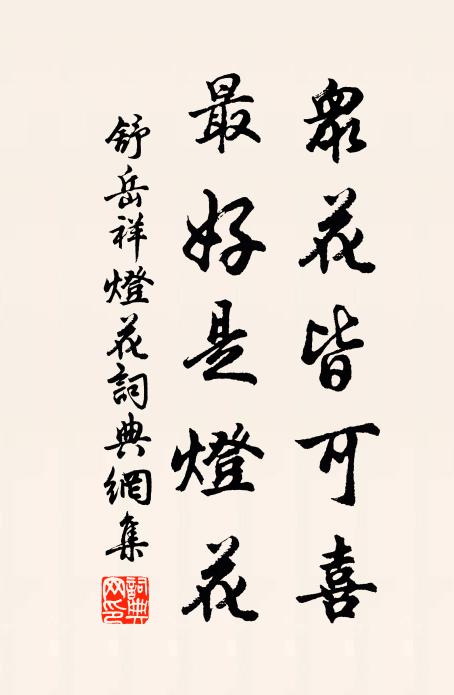 眾花皆可喜
最好是燈花
舒岳祥燈花詞典網集
詞典网印